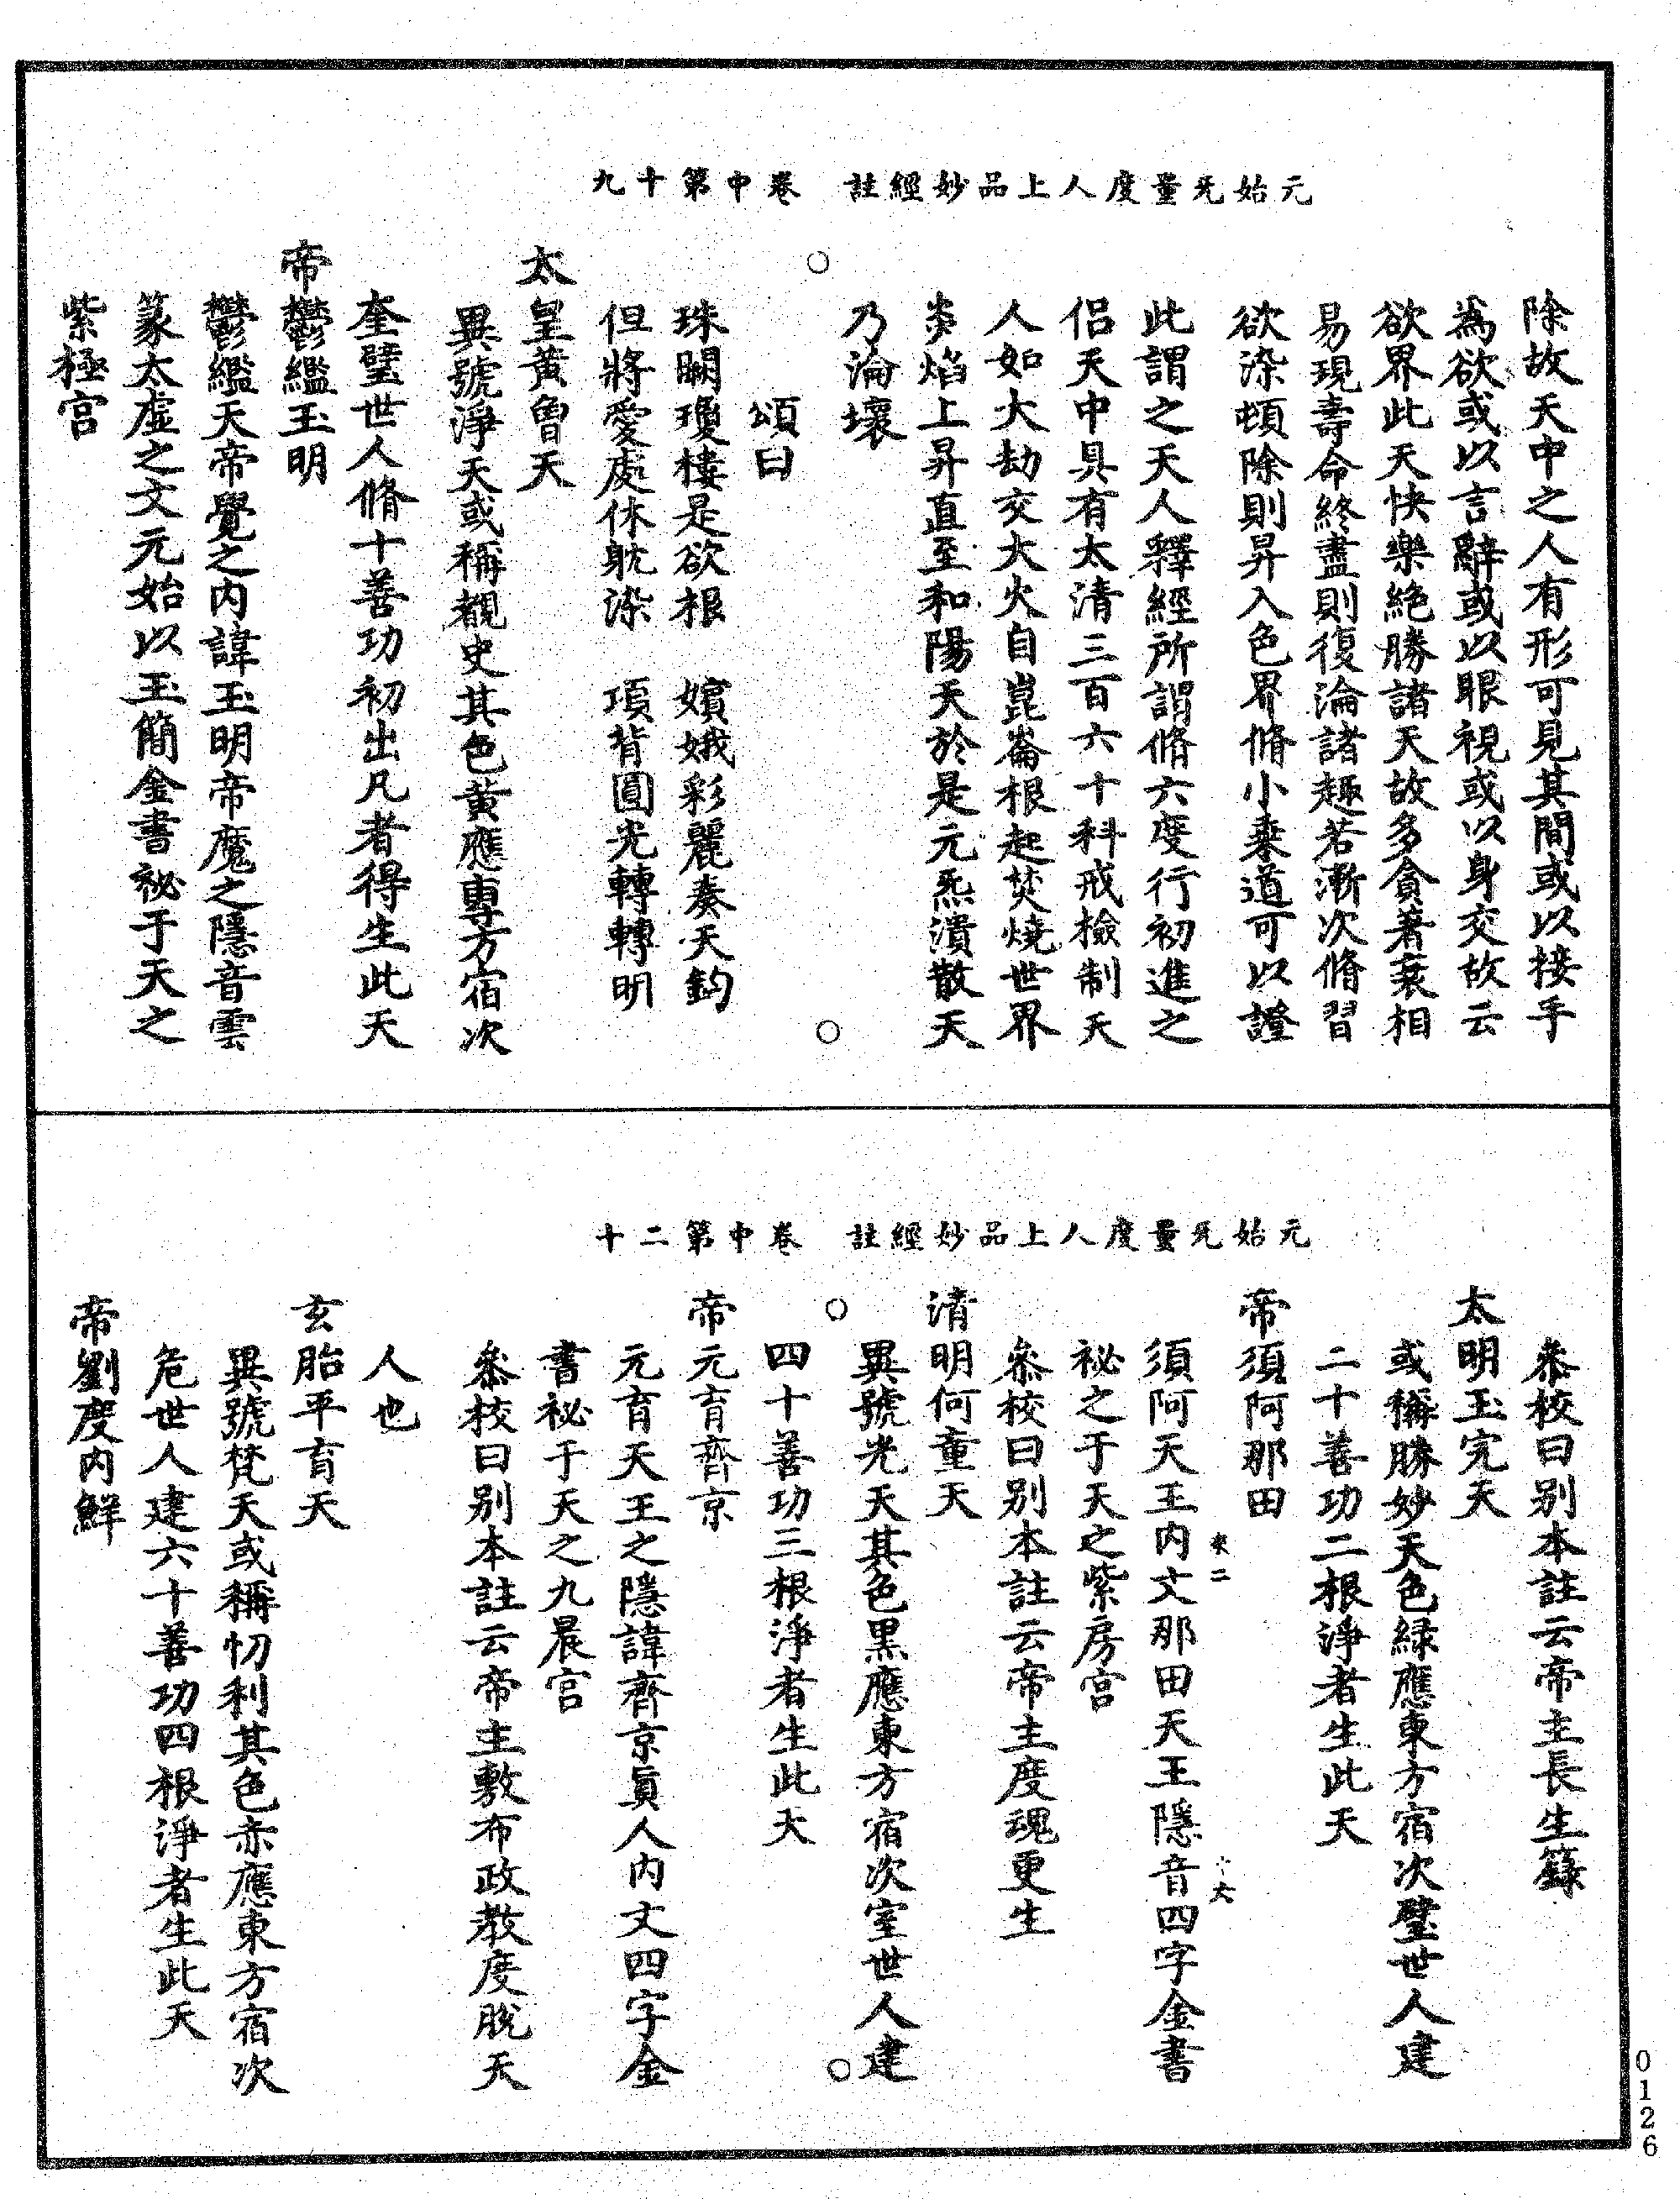 元始无量度人上品妙經註　卷中第十九
除故天中之人有形可見其間或以接手
為欲或以言辭或以眼視或以身交故云
欲界此天快樂絶勝諸天故多貪著衰相
易現壽命終盡則復淪諸趣若漸次脩習
欲染頓除則昇入色界脩小乘道可以證
此謂之天人釋經所謂脩六度行初進之
侣天中具有太清三百六十科戒檢制天
人如大劫交大火自崑崙根起焚燒世界
炎焰上昇直至和陽天於是元炁潰散天
乃淪壞
○　○
頌曰
珠闕瓊樓是欲根　嬪娥彩麗奏天鈞
但將愛處休躭染　項背圓光轉轉明
太皇黄曾天
異號淨天或稱覩史其色黄應專方宿次
奎璧世人脩十善功初出凡者得生此天
帝鬱繿玉明
鬱繿天帝覺之内諱玉明帝魔之隱音雲
篆太虛之文元始以玉簡金書祕于天之
紫極宫
元始无量度人上品妙經註　卷中第二十
叅校曰别本註云帝主長生籙
太明玉完天
或稱勝妙天色緑應東方宿次璧世人建
二十善功二根淨者生此天
帝須阿那田
來二　十六
須阿天王内文那田天王隱音四字金書
祕之于天之紫房宫
叅校曰别本註云帝主度魂更生
清明何童天
異號光天其色黑應東方宿次室世人建
○　○
四十善功三根淨者生此天
帝元育齊京
元育天王之隱諱齊京眞人内文四字金
書祕于天之九晨宫
叅校曰别本註云帝主敷布政教度脱天
人也
玄胎平育天
異號梵天或稱忉利其色赤應東方宿次
危世人建六十善功四根淨者生此天
帝劉度内鮮
0126